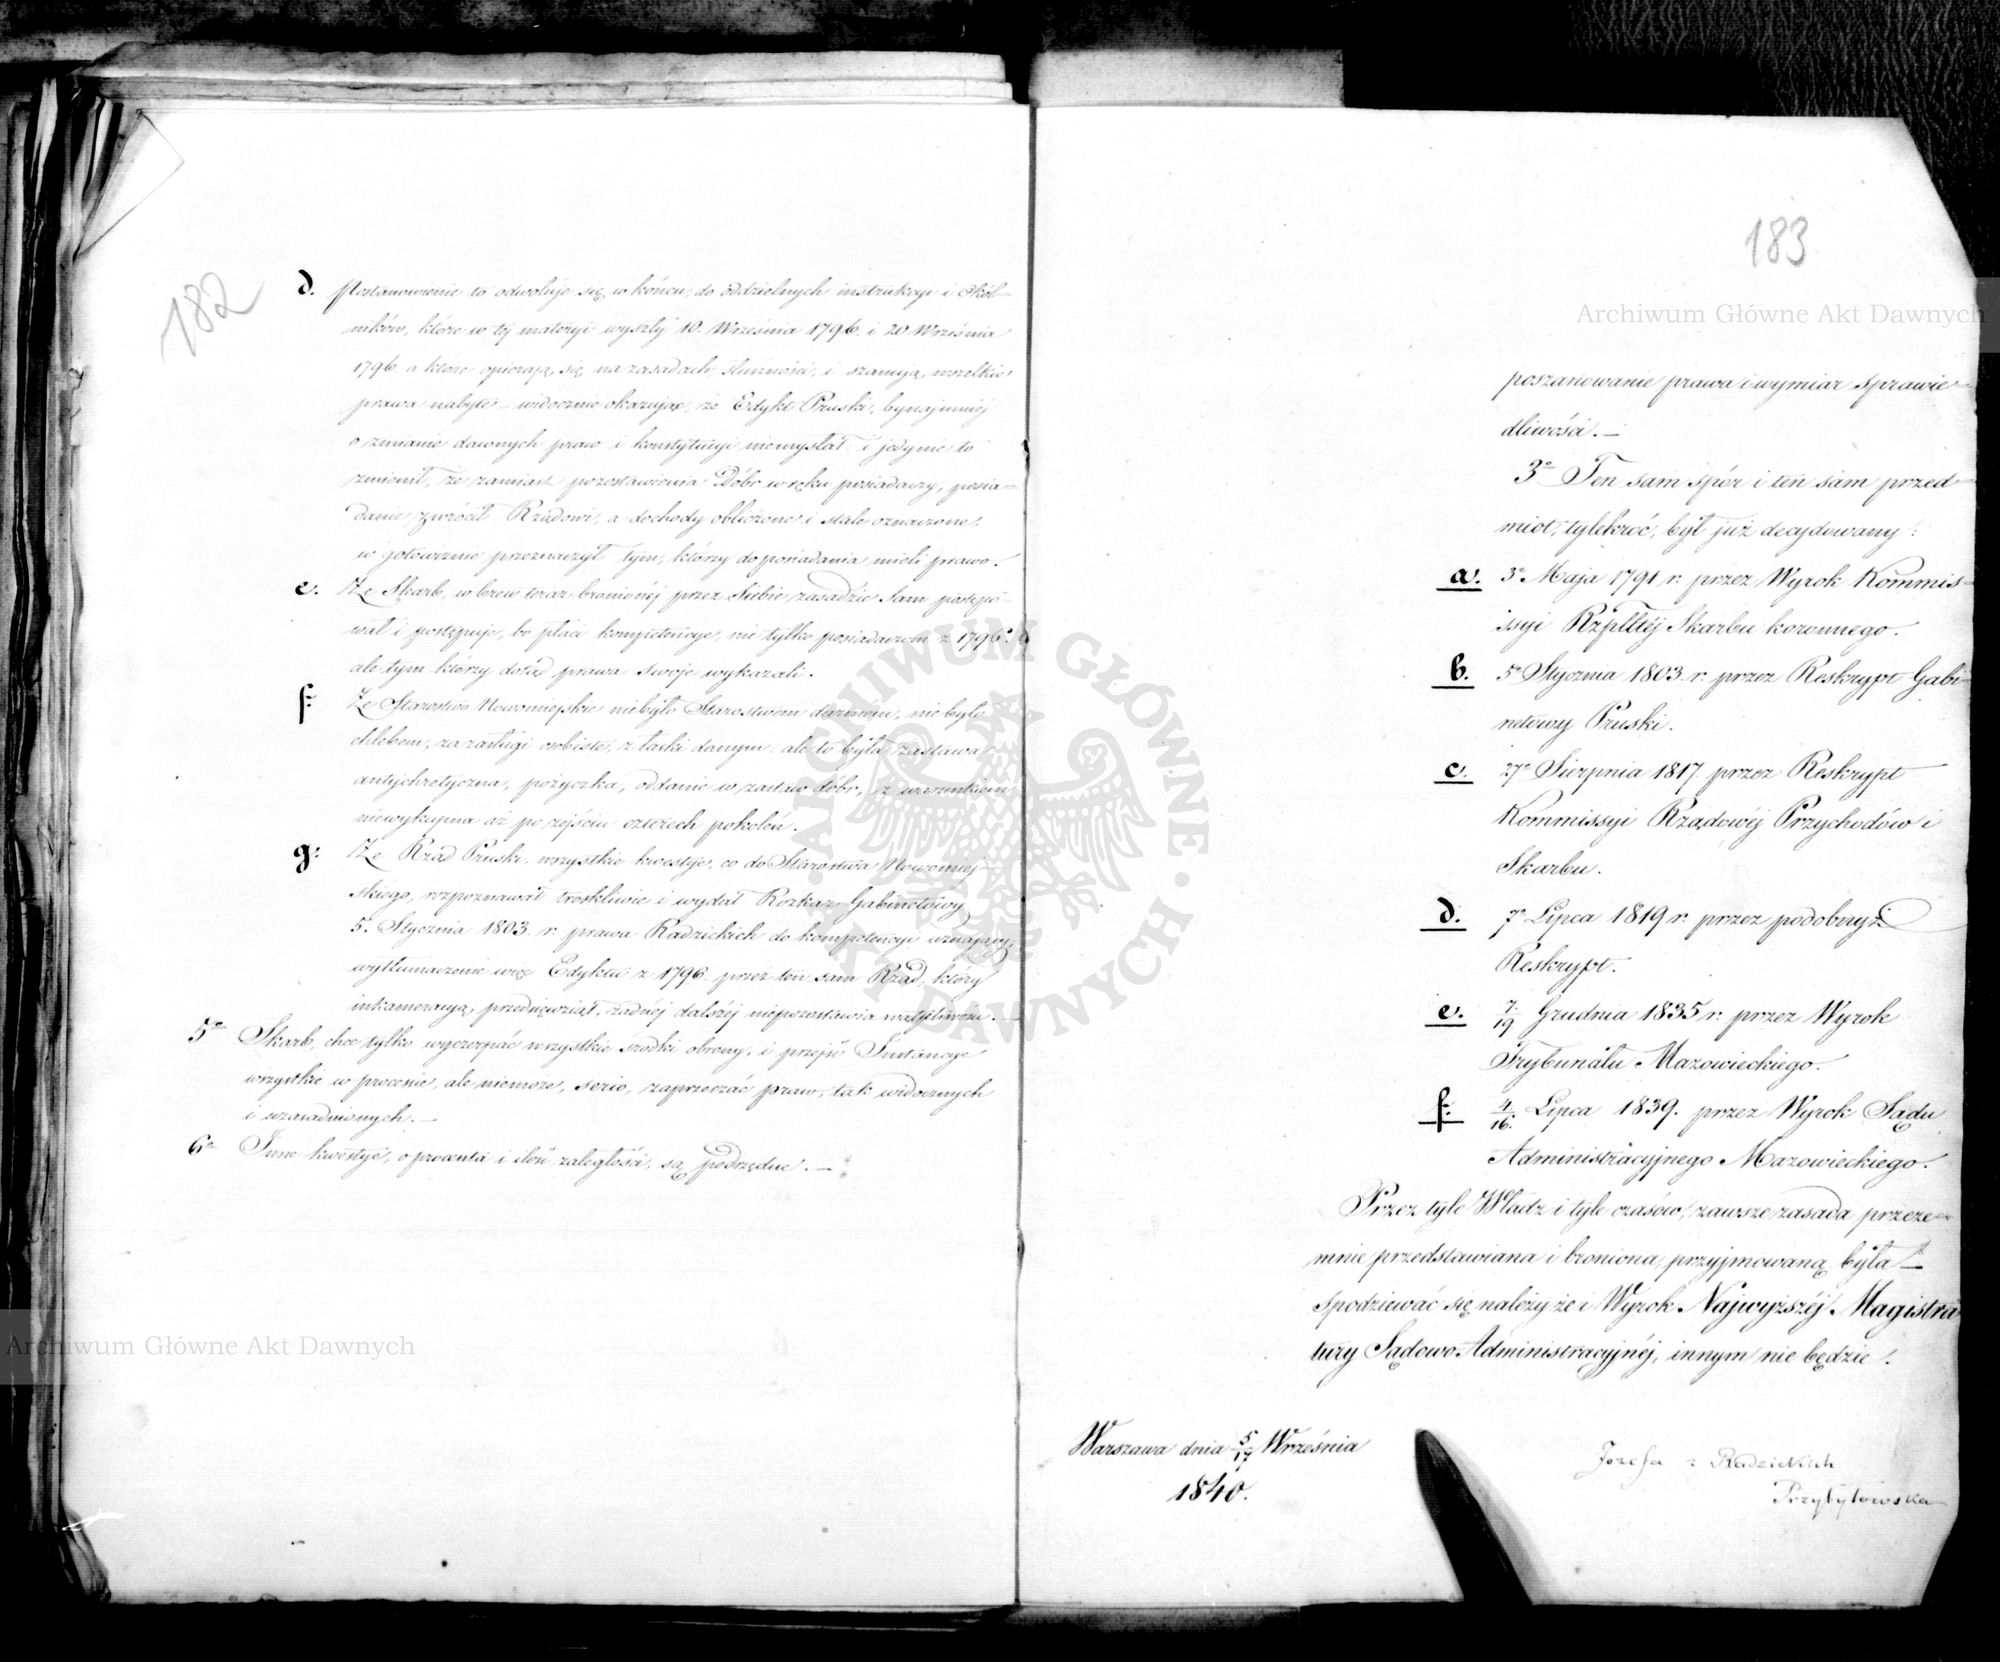 182
d. postanowienie to odwołuje się w końcu, do oddzielnych instrukcyi i Okól-
ników, które w tej materyi wyszły 10. Września 1796. i 20 Września
1796. a które opierają się na zasadach słuszności, i szanują wszelkie
prawa nabyte – widocznie okazując, że Edykt Pruski, bynajmniej
o zmianie dawnych praw i konstytucyi niemyślał, i jedynie to
zmienił, że zamiast pozostawienia Dóbr w ręku posiadaczy, posia-
danie zwrócił Rządowi, a dochody obliczone i stale oznaczone
w gotowiznie przeznaczył tym, którzy do posiadania mieli prawo.
e. Że Skarb, wbrew teraz bronionéj przez Siebie zasadzie Sam postępo-
wał i postępuje, bo płaci kompetencye, nie tylko posiadaczom z 1796 r.
ale tym którzy dotąd prawa swoje wykazali.
f. Że Starostwo Nowomiejskie niebyło Starostwem darmem, nie było
chlebem, za zasługi osobiste, z łaski danym, ale to była zastawa
antychretyczna, pożyczka, oddanie w zastaw dóbr, z warunkiem
niewykupna aż po zejściu czterech pokoleń.
g. Że Rząd Pruski wszystkie kwestye, co do Starostwa Nowomiej-
skiego, rozpoznawał troskliwie i wydał Rozkaz Gabinetowy
5. Stycznia 1803. r. prawa Radzickich do kompetencyi uznający,
wytłumaczenie więc Edyktu z 1796. przez ten sam Rząd, który
inkameracyą przedsięwziął, żadnéj dalszéj niepozostawia wątpliwości. –
5o Skarb, chce tylko wyczerpać wszystkie środki obrony, i przejść Instancye
wszystkie w procesie, ale niemoże, serio, zaprzeczać praw, tak widocznych
i uzasadnionych. –
6o Inne kwestye, o procenta i ilość zaległości, są podrzędne. –
183
Archiwum Główne Akt Dawnych
poszanowanie prawa i wymiar sprawie-
dliwości. –
3o Ten sam spór i ten sam przed-
miot, tylekroć, był już decydowany:
a. 3o Maja 1791 r. przez Wyrok Kommis-
syi Rzpltéj Skarbu koronnego.
b. 5o Stycznia 1803. r. przez Reskrypt Gabi-
netowy Pruski.
c. 27o Sierpnia 1817. przez Reskrypt
Kommissyi Rządowéj Przychodów i
Skarbu.
d. 7o Lipca 1819 r. przez podobnyż
Reskrypt.
e. 7/19 Grudnia 1835 r. przez Wyrok
Trybunału Mazowieckiego.
f. 4/16. Lipca 1839. przez Wyrok Sądu
Administracyjnego Mazowieckiego.
Przez tyle Władz i tyle czasów, zawsze zasada przeze-
mnie przedstawiana i broniona, przyjmowaną była –
spodziewać się należy że i Wyrok Najwyższéj Magistra-
tury Sądowo Administracyjnéj, innym nie będzie.
Warszawa dnia 5/17 Września
1840.
Józefa z Radzickich
Przybyłowska
Archiwum Główne Akt Dawnych
ARCHIWUM GŁÓWNE AKT DAWNYCH